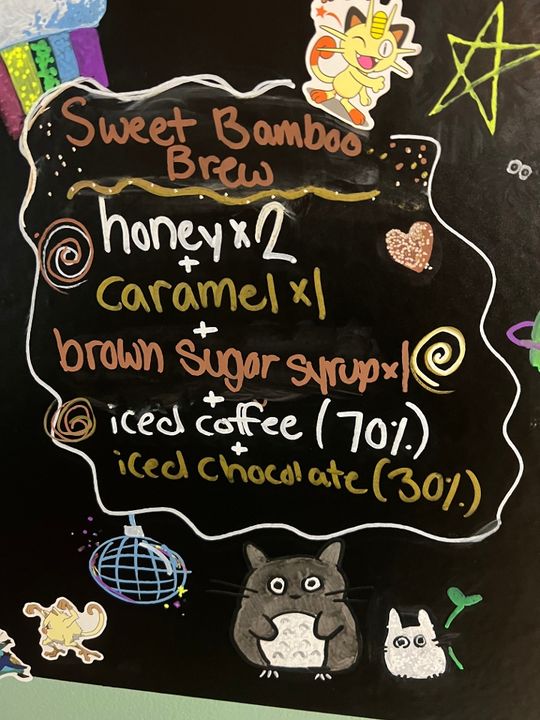 Sweet Bamboo
Brew
honey x2
+
caramel x1
+
brown sugar syrup x1
+
iced coffee (70%)
+
iced chocolate (30%)